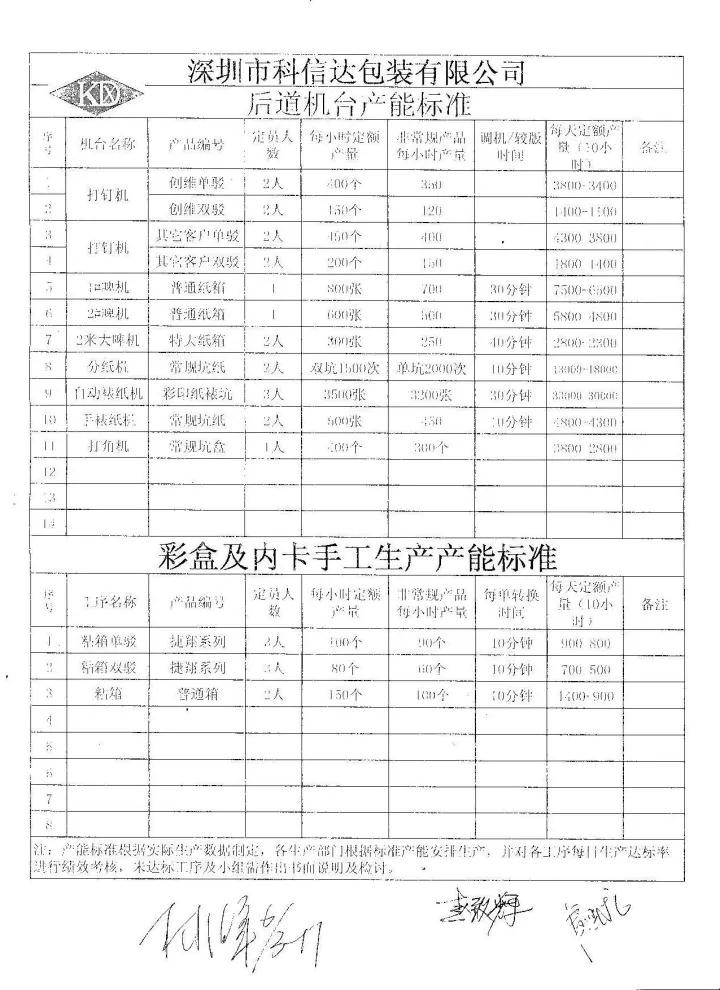 KDX
深圳市科信达包装有限公司
后道机台产能标准
序号 机台名称 产品编号 定员人数 每小时定额产量 非常规产品每小时产量 调机/较版时间 每天定额产量（10小时） 备注
1 打钉机 创维单驳 2人 400个 350 3800-3400
2 创维双驳 2人 150个 120 1400-1100
3 打钉机 其它客户单驳 2人 450个 400 4300-3800
4 其它客户双驳 2人 200个 150 1800-1400
5 1#啤机 普通纸箱 1 800张 700 30分钟 7500-6500
6 2#啤机 普通纸箱 1 600张 500 30分钟 5800-4800
7 2米大啤机 特大纸箱 2人 300张 250 40分钟 2800-2300
8 分纸机 常规坑纸 2人 双坑1500次 单坑2000次 10分钟 -18000
9 自动裱纸机 彩印纸裱坑 3人 3500张 3200张 30分钟 33000-30000
10 手裱纸机 常规坑纸 2人 500张 450 10分钟 4800-4300
11 打角机 常规坑盒 1人 400个 300个 3800-2800
12
13
14
彩盒及内卡手工生产产能标准
序号 工序名称 产品编号 定员人数 每小时定额产量 非常规产品每小时产量 每单转换时间 每天定额产量（10小时） 备注
1 粘箱单驳 捷翔系列 3人 100个 90个 10分钟 900-800
2 粘箱双驳 捷翔系列 3人 80个 60个 10分钟 700-500
3 粘箱 普通箱 2人 150个 100个 10分钟 1400-900
4
5
6
7
8
注：产能标准根据实际生产数据制定，各生产部门根据标准产能安排生产，并对各工序每日生产达标率
进行绩效考核，未达标工序及小组需作出书面说明及检讨。